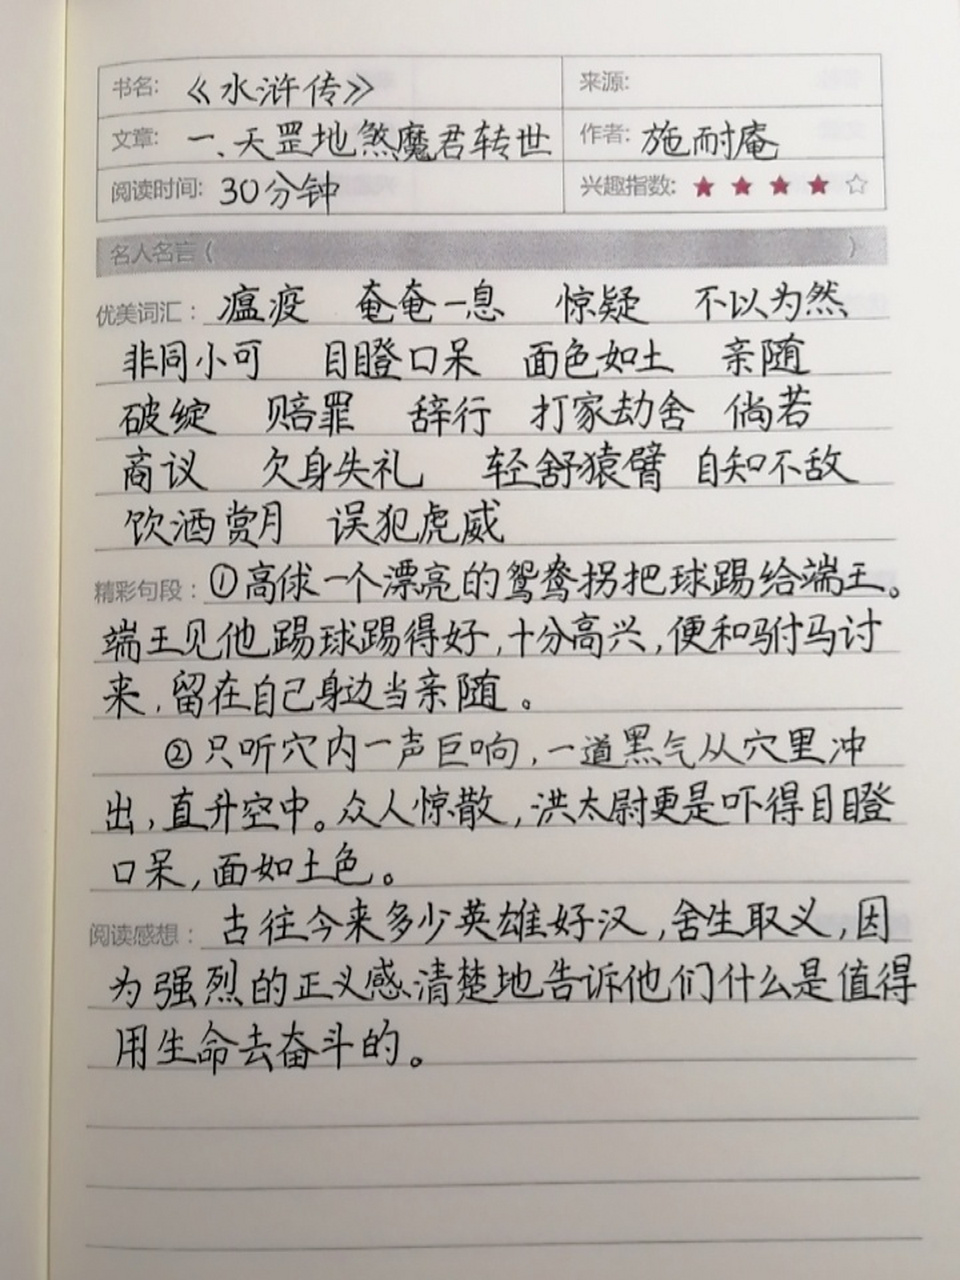 书名: 《水浒传》 来源:
文章: 一、天罡地煞魔君转世 作者: 施耐庵
阅读时间: 30分钟 兴趣指数: ★★★★☆
名人名言 ( )
优美词汇: 瘟疫 奄奄一息 惊疑 不以为然
非同小可 目瞪口呆 面色如土 亲随
破绽 赔罪 辞行 打家劫舍 倘若
商议 欠身失礼 轻舒猿臂 自知不敌
饮酒赏月 误犯虎威
精彩句段: ①高俅一个漂亮的鸳鸯拐把球踢给端王。
端王见他踢球踢得好,十分高兴,便和驸马讨
来,留在自己身边当亲随。
②只听穴内一声巨响,一道黑气从穴里冲
出,直升空中。众人惊散,洪太尉更是吓得目瞪
口呆,面如土色。
阅读感想: 古往今来多少英雄好汉,舍生取义,因
为强烈的正义感清楚地告诉他们什么是值得
用生命去奋斗的。